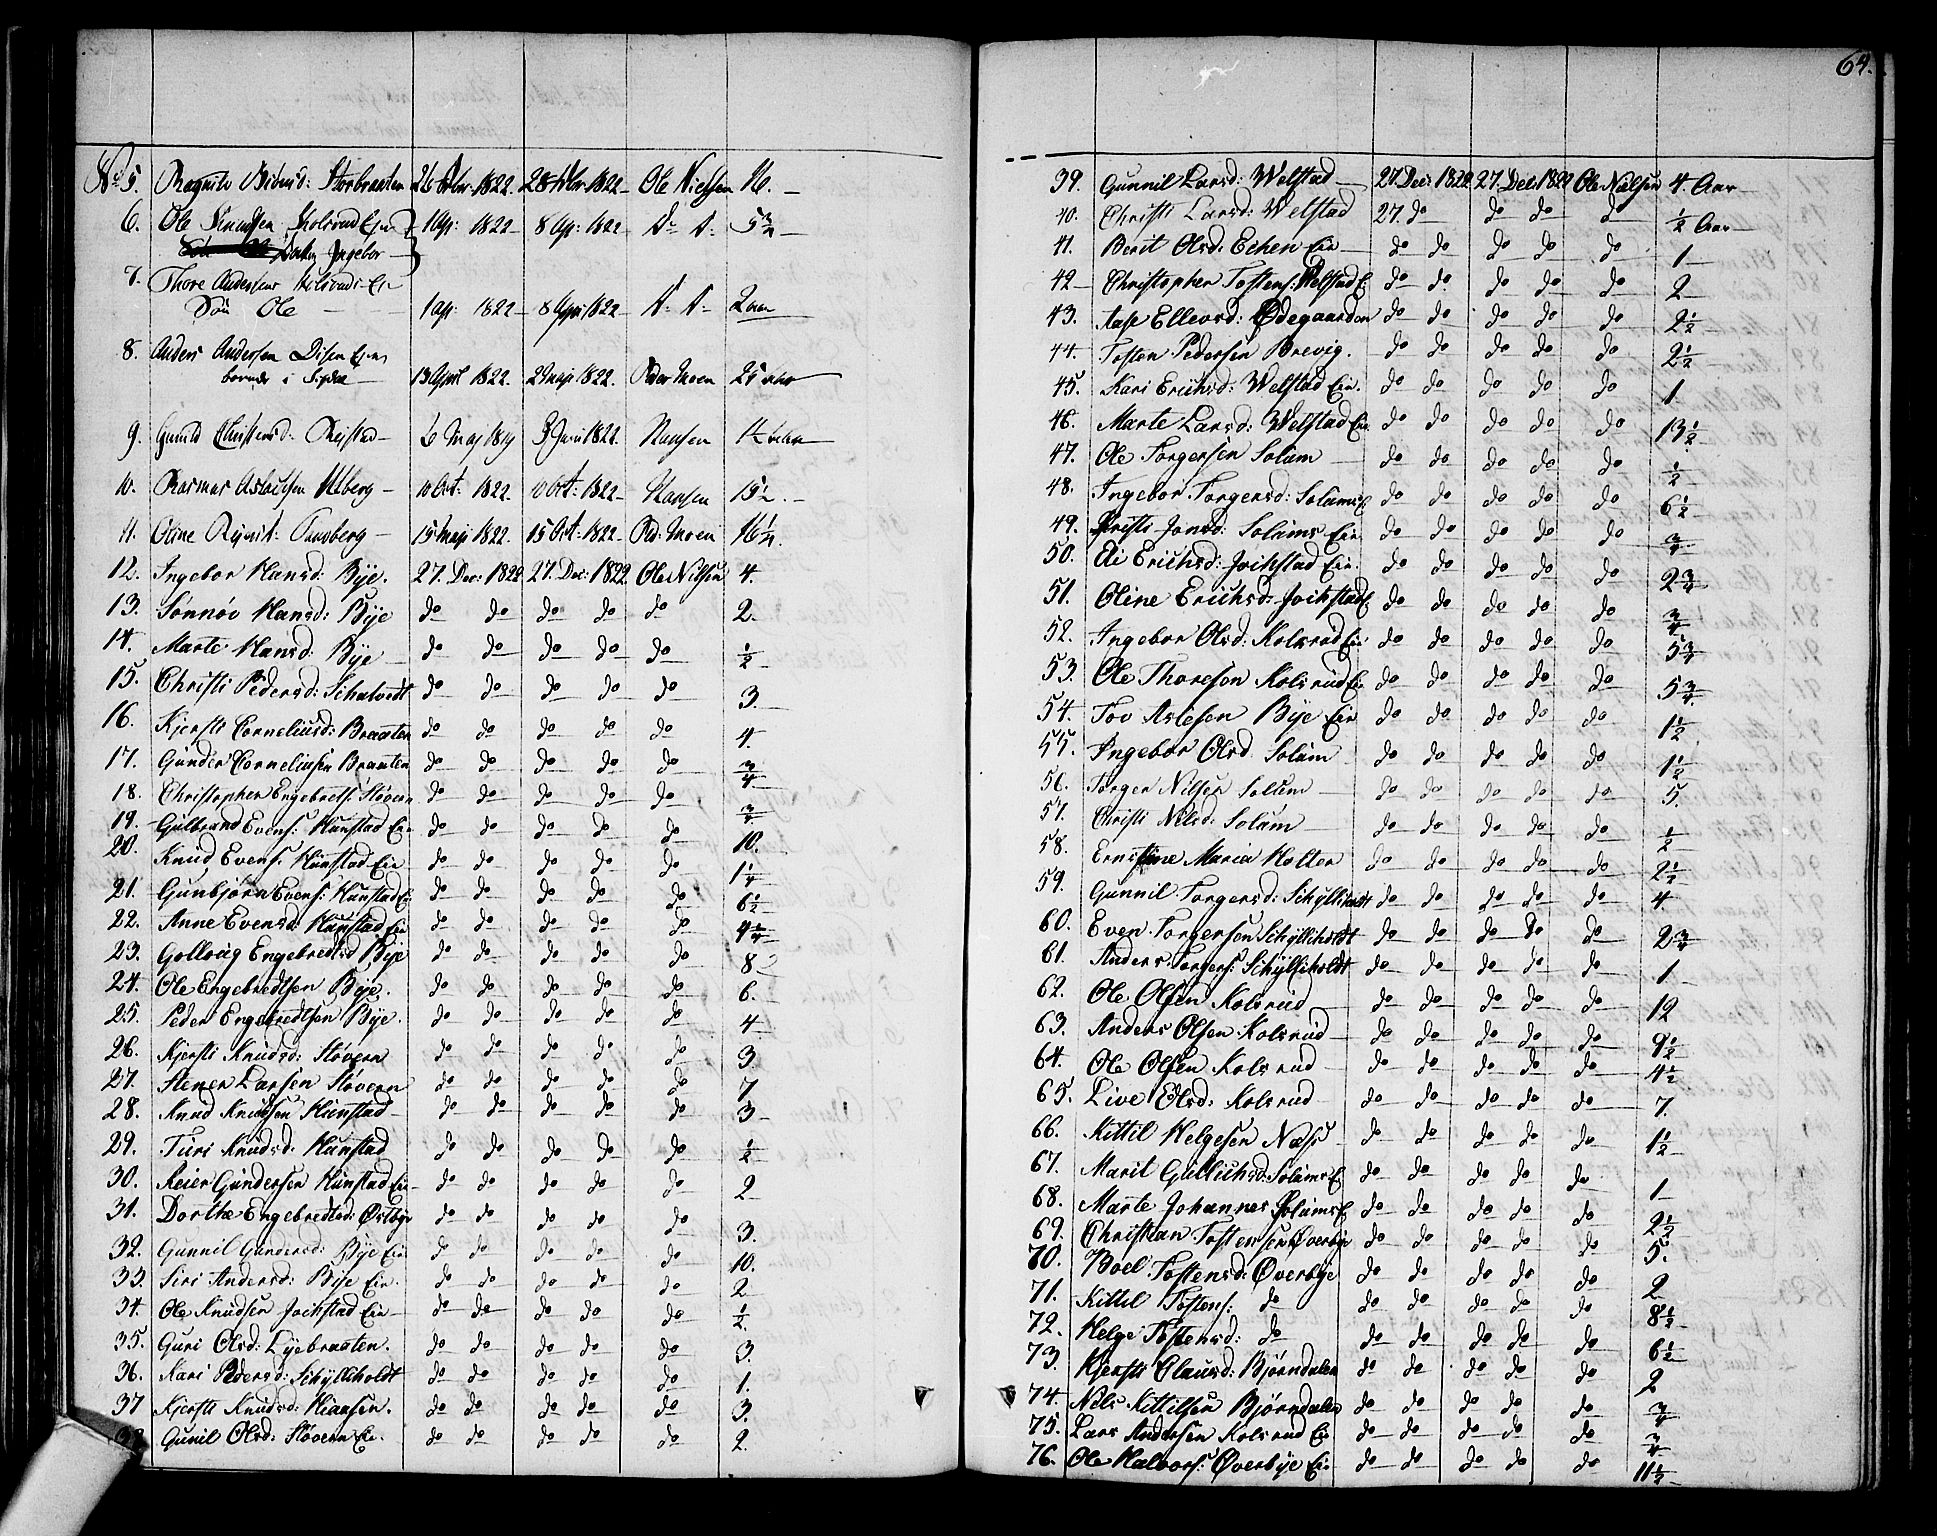 64.
No 5. Ragnild Størbraaten 26 1822. 28 1822 Ole Nielsen 16.
6. Ole Knudsen Kolsrud Eje 1 Ap: 1822 8 Ap: 1822 do do 5 3/4
Datter Ingebor
7. Thore Andersens Kolsrud Eie
Søn Ole 1 ap: 1822 8 April 1822 do do 2 aar
8. Anders Andersen Disen Ejer
13 April 1822. 2 maj 1822. Peder Moen 25
9. Gunild Christensd: 6 Maj 1819 3 Juni 1822. Hansen 1½
10. Rasmus Aslacksen 10 Oct: 1822. 10 Oct: 1822 Hansen 15½
11. Oline Tandberg 15 maji 1822. 15 Oct: 1822 Ped: Moen 16¼
12. Ingebor Hansd: Bye. 27. Dec: 1822 27. Dec: 1822. Ole Nilsen 4.
13. Sønnøv Hansd: Bye do do do do do 2.
14. Marte Hansd: Bye do do do do do ½
15. Christi Pedersd: Schalvedt do do do do do 3.
16. Kjersti Corneliusd: Braaten do do do do do 4.
17. Gunder Corneliusen Braaten do do do do do ¾
18. Christopher Engebrets: Støvern do do do do do ¾
19. Gulbrand Evens: Hunstad Eie do do do do do 10.
20. Knud Evens: Hunstad Eie do do do do do 1¼
21. Gunbjørn Evens: Hunstad Ei do do do do do 6½
22. Anne Evensd: Hunstad Eie do do do do do 4¼
23. Gollaug Engebredtsd Bye do do do do do 8
24. Ole Engebredtsen Bye. do do do do do 6.
25. Peder Engebredtsen Bye. do do do do do 4
26. Kjersti Knudsd: Støvern do do do do do 3
27. Stener Larsen Støvern do do do do do 7
28. Knud Knudsen Hunstad do do do do do 3
29. Turi Knudsd: Hunstad do do do do do ½
30. Reier Gundersen Hunstad Eie do do do do do 2
31. Dorthe Engebredtsd: Østbye do do do do do 3.
32. Gunnil Gundersd: Bye Eie do do do do do 10.
33. Siri Andersd: Bye Eie do do do do do 2
34. Ole Knudsen Jochstad Eie do do do do do ½.
35. Guri Olsd: Lyebraaten. do do do do do 3.
36. Kari Pedersd: Schylleholdt do do do do do 1.
37 Kjersti Knudsd: Hiaasen. do do do do do 3.
38 Gunil Olsd: Støvern Ei. do do do do do 2.
39. Gunnil Larsd: Welstad 27. Dec: 1822 27. Dec: 1822 Ole Nielsen 4. Aar
40. Christi Larsd: Welstad 27. do do do do ½ Aar
41. Berit Olsd: Echen Eie do do do do do 1
42 Christopher Tostens: Welstad E do do do do do 2
43. Aase Ellevsd: Ødegaarden do do do do do 2½
44. Tosten Pedersen Brevig. do do do do do 2½
45. Kari Erichsd: Welstad Eie. do do do do do 1
46. Marte Larsd: Welstad Eie do do do do do 13½
47. Ole Torgersen Solum do do do do do ½
48. Ingebor Torgersd: Solums E do do do do do 6½
49. Kristi Jonsd: Solums Eie do do do do do ¾
50. Eli Erichsd: Jochstad Eie. do do do do do 2¾
51. Oline Erichsd: Jochstad E do do do do do ¾
52. Ingebor Olsd: Kolsrud Eie do do do do do 5¾
53. Ole Thoresen Kolsrud Eie do do do do do 5¾
54. Tov Aslesen Bye Eie do do do do do 1½
55. Ingebor Olsd. Solum do do do do do 1½
56. Torger Nilsen Solum do do do do do 5.
57. Christi Nilsd: Solum do do do do do ½
58. Ernstine Maria Holter do do do do do 2½
59. Gunnil Torgersd: Schylliholdt do do do do do 4
60. Even Torgersen Schylliholdt do do do do do 2¾
61. Anders Torgers: Schylliholdt do do do do do 1
62. Ole Olsen Kolsrud do do do do do 12
63. Anders Olsen Kolsrud do do do do do 9½
64. Ole Olsen Kolsrud do do do do do 4½
65. Live Olsd: Kolsrud do do do do do 7.
66. Kittil Helgesen Næss do do do do do 1½
67. Marit Gullichsd: Solums E do do do do do 1
68. Marte Johannes Solums E do do do do do 2½
69. Christian Tostensen Øverbye do do do do do 5.
70. Boel Tostensd: Øverbye do do do do do 2
71. Kittil Tostens: do do do do do do 8½
72. Helge Tostensd: do do do do do do 6½
73. Kjersti Clausd: Bjørndalen do do do do do 2
74. Nils Kittilsen Bjørndalen do do do do do ¾
75. Lars Andersen Kolsrud Ei do do do do do ¾
76. Ole Halvors: Øverbye Ei do do do do do 11½